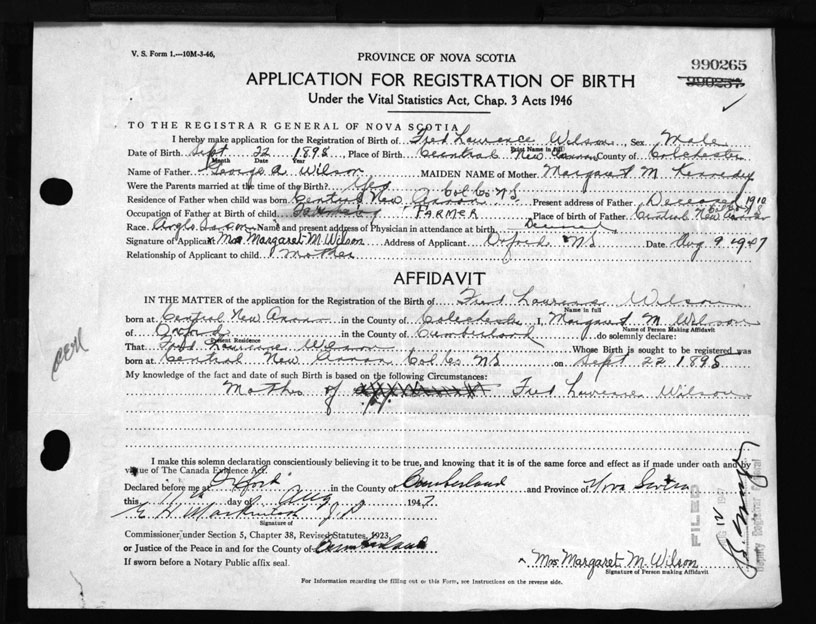 V. S. Form 1.—10M-3-46.
PROVINCE OF NOVA SCOTIA
990265
990257
APPLICATION FOR REGISTRATION OF BIRTH
Under the Vital Statistics Act, Chap. 3 Acts 1946
TO THE REGISTRAR GENERAL OF NOVA SCOTIA
I hereby make application for the Registration of Birth of Fred Lawrence Wilson Sex Male
Print Name in full
Date of Birth Sept 22 1898 Place of Birth Central New Annan County of Colchester
Month Date Year
Name of Father George A Wilson MAIDEN NAME of Mother Margaret M. Kennedy
Were the Parents married at the time of the Birth? Yes
Residence of Father when child was born Central New Annan Col Co NS Present address of Father Deceased 1910
Occupation of Father at Birth of child FARMER Place of birth of Father Central New Annan Col Co NS
Race Anglo Saxon Name and present address of Physician in attendance at birth Deceased
Signature of Applicant Mrs Margaret M. Wilson Address of Applicant Oxford NS Date Aug 9 1947
Relationship of Applicant to child Mother
AFFIDAVIT
IN THE MATTER of the application for the Registration of the Birth of Fred Lawrence Wilson
Name in full
born at Central New Annan in the County of Colchester I, Margaret M. Wilson
Name of Person Making Affidavit
of Oxford in the County of Cumberland do solemnly declare:
Present Residence
That Fred Lawrence Wilson Whose Birth is sought to be registered was
born at Central New Annan Col Co NS on Sept 22 1898
My knowledge of the fact and date of such Birth is based on the following Circumstances:
Mother of Fred Lawrence Wilson
I make this solemn declaration conscientiously believing it to be true, and knowing that it is of the same force and effect as if made under oath and by
virtue of The Canada Evidence Act.
Declared before me at Oxford in the County of Cumberland and Province of Nova Scotia
this 11th day of Aug 1947
Signature of
Commissioner under Section 5, Chapter 38, Revised Statutes, 1923,
or Justice of the Peace in and for the County of Cumberland
If sworn before a Notary Public affix seal.
Mrs. Margaret M. Wilson
Signature of Person making Affidavit
For Information regarding the filling out of this Form, see Instructions on the reverse side.
FILED
Deputy Registrar General